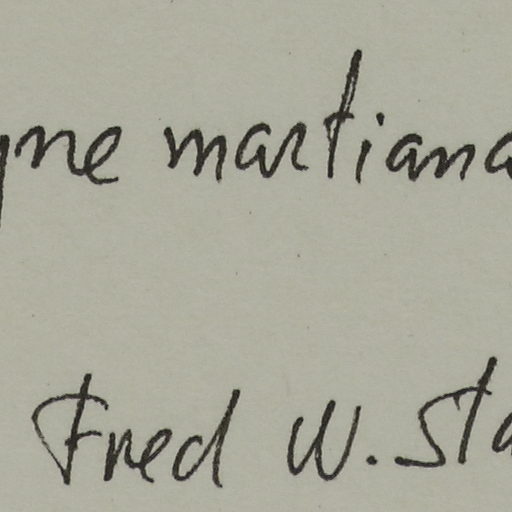 yne martiana
Fred W. Sta